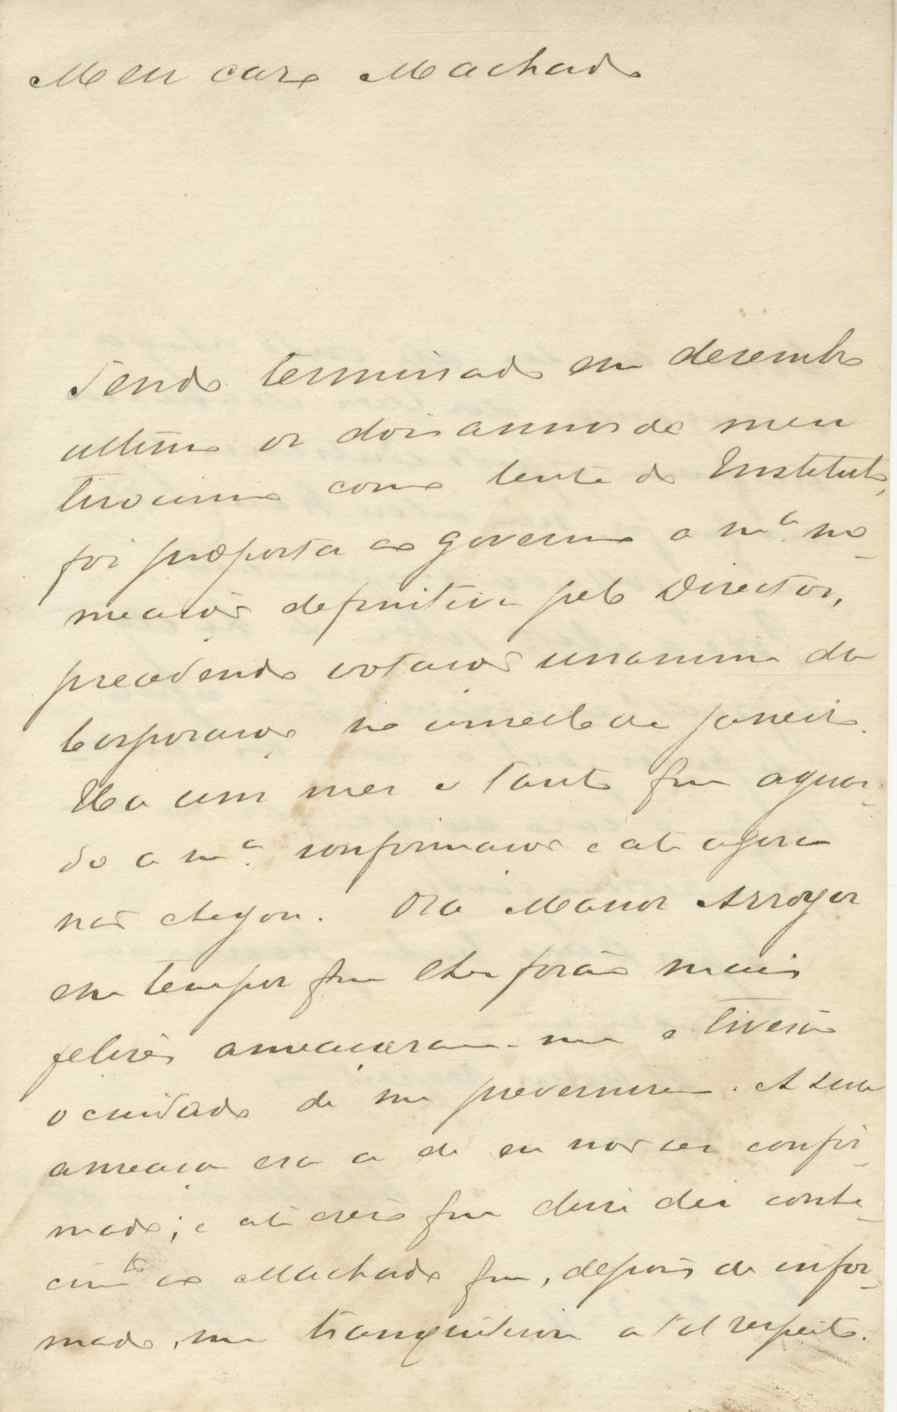 Meu caro Machado
Tendo terminado em dezembro
ultimo os dois annos de meu
tirocinio como lente do Instituto,
foi proposta ao governo a mª. no-
meação definitiva pelo Director,
precedendo votação unanime da
Corporação no começo de janeiro.
Ha um mez e tanto que aguar-
do a mª. confirmação e até agora
não chegou. Ora Manos Arroyos
em tempos que lhes forão mais
felizes ameaçaram-me e tiverão
o cuidado de me prevenirem. A sua
ameaça era a de eu não ser confir-
mado; e até creio que disso dei conhe-
cimto ao Machado que, depois de infor-
mado, me tranquilisou a tal respeito.